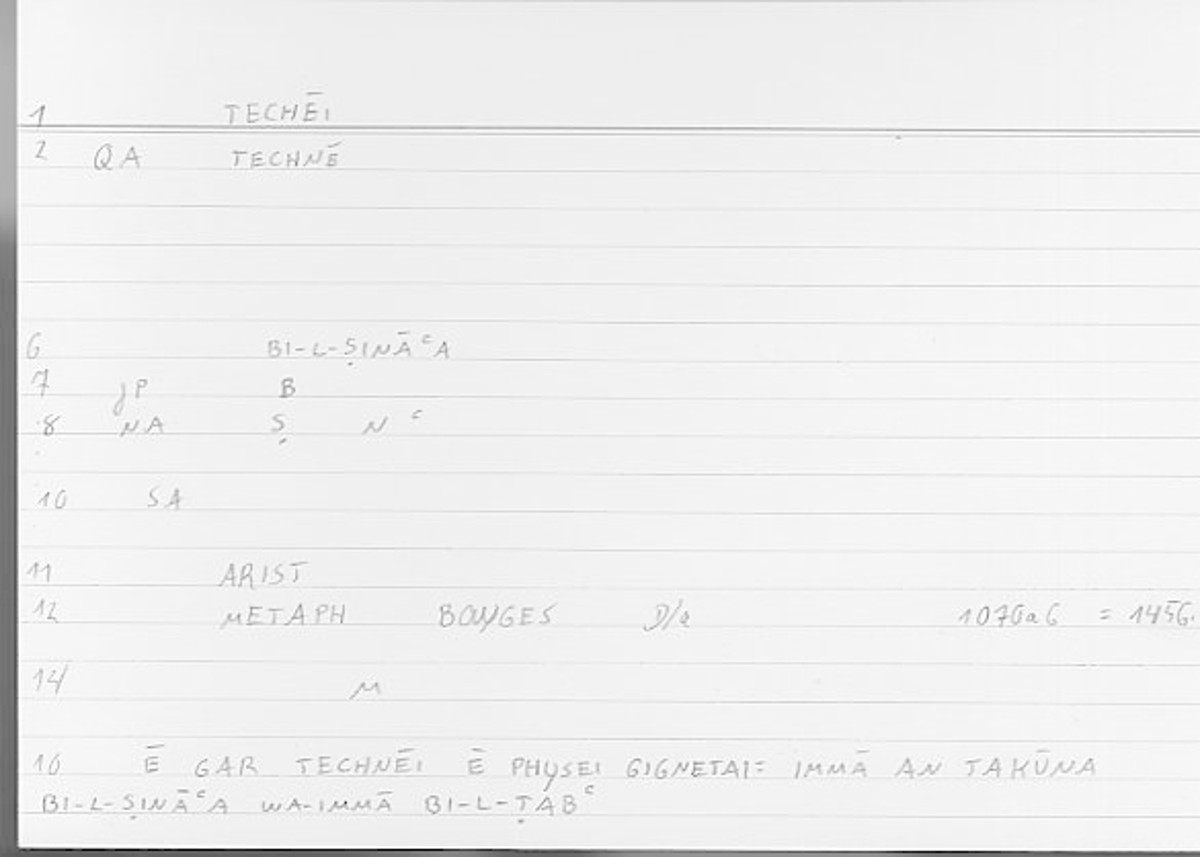 1 TECHĒI
2 QA TECHNĒ
6 BI-L-ṢINĀʿA
7 JP B
8 NA Ṣ N ʿ
10 SA
11 ARIST
12 METAPH BOUYGES D/a 1070a6 = 1456.
14 M
16 Ē GAR TECHNĒI Ē PHYSEI GIGNETAI: IMMĀ AN TAKŪNA
BI-L-ṢINĀʿA WA-IMMĀ BI-L-ṬABʿ